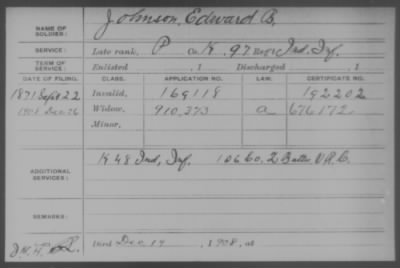 NAME OF SOLDIER: Johnson, Edward B.
SERVICE: Late rank, P Co. K, 97 Reg't Ind. Inf.
TERM OF SERVICE: Enlisted , 1 Discharged , 1
DATE OF FILING. CLASS. APPLICATION NO. LAW. CERTIFICATE NO.
1871 Sept 22 Invalid, 169118 192202
1908 Dec 26 Widow, 910,373 a 676,172
Minor,
ADDITIONAL SERVICES: K 48 Ind. Inf. 106 Co. 2 Batt. V.R.C.
REMARKS:
Died Dec. 19, 1908, at